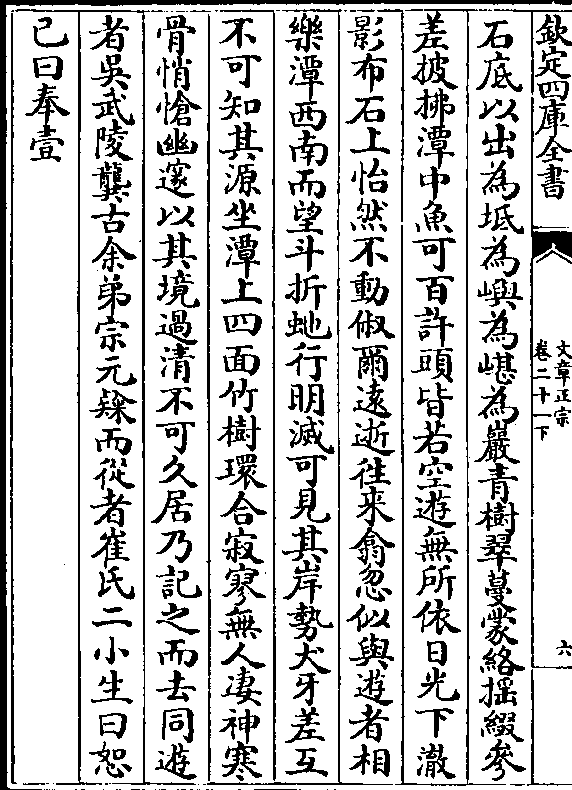 欽定四庫全書
文章正宗
卷二十一下
六
石底以出為坻為嶼為嵁為巖青樹翠蔓蒙絡揺綴參
差披拂潭中魚可百許頭皆若空遊無所依日光下澈
影布石上怡然不動俶爾遠逝往来翕忽似與遊者相
樂潭西南而望斗折虵行明滅可見其岸勢犬牙差互
不可知其源坐潭上四面竹樹環合寂寥無人凄神寒
骨悄愴幽邃以其境過清不可久居乃記之而去同遊
者吳武陵龔古余弟宗元𨽻而從者崔氏二小生曰恕
己曰奉壹